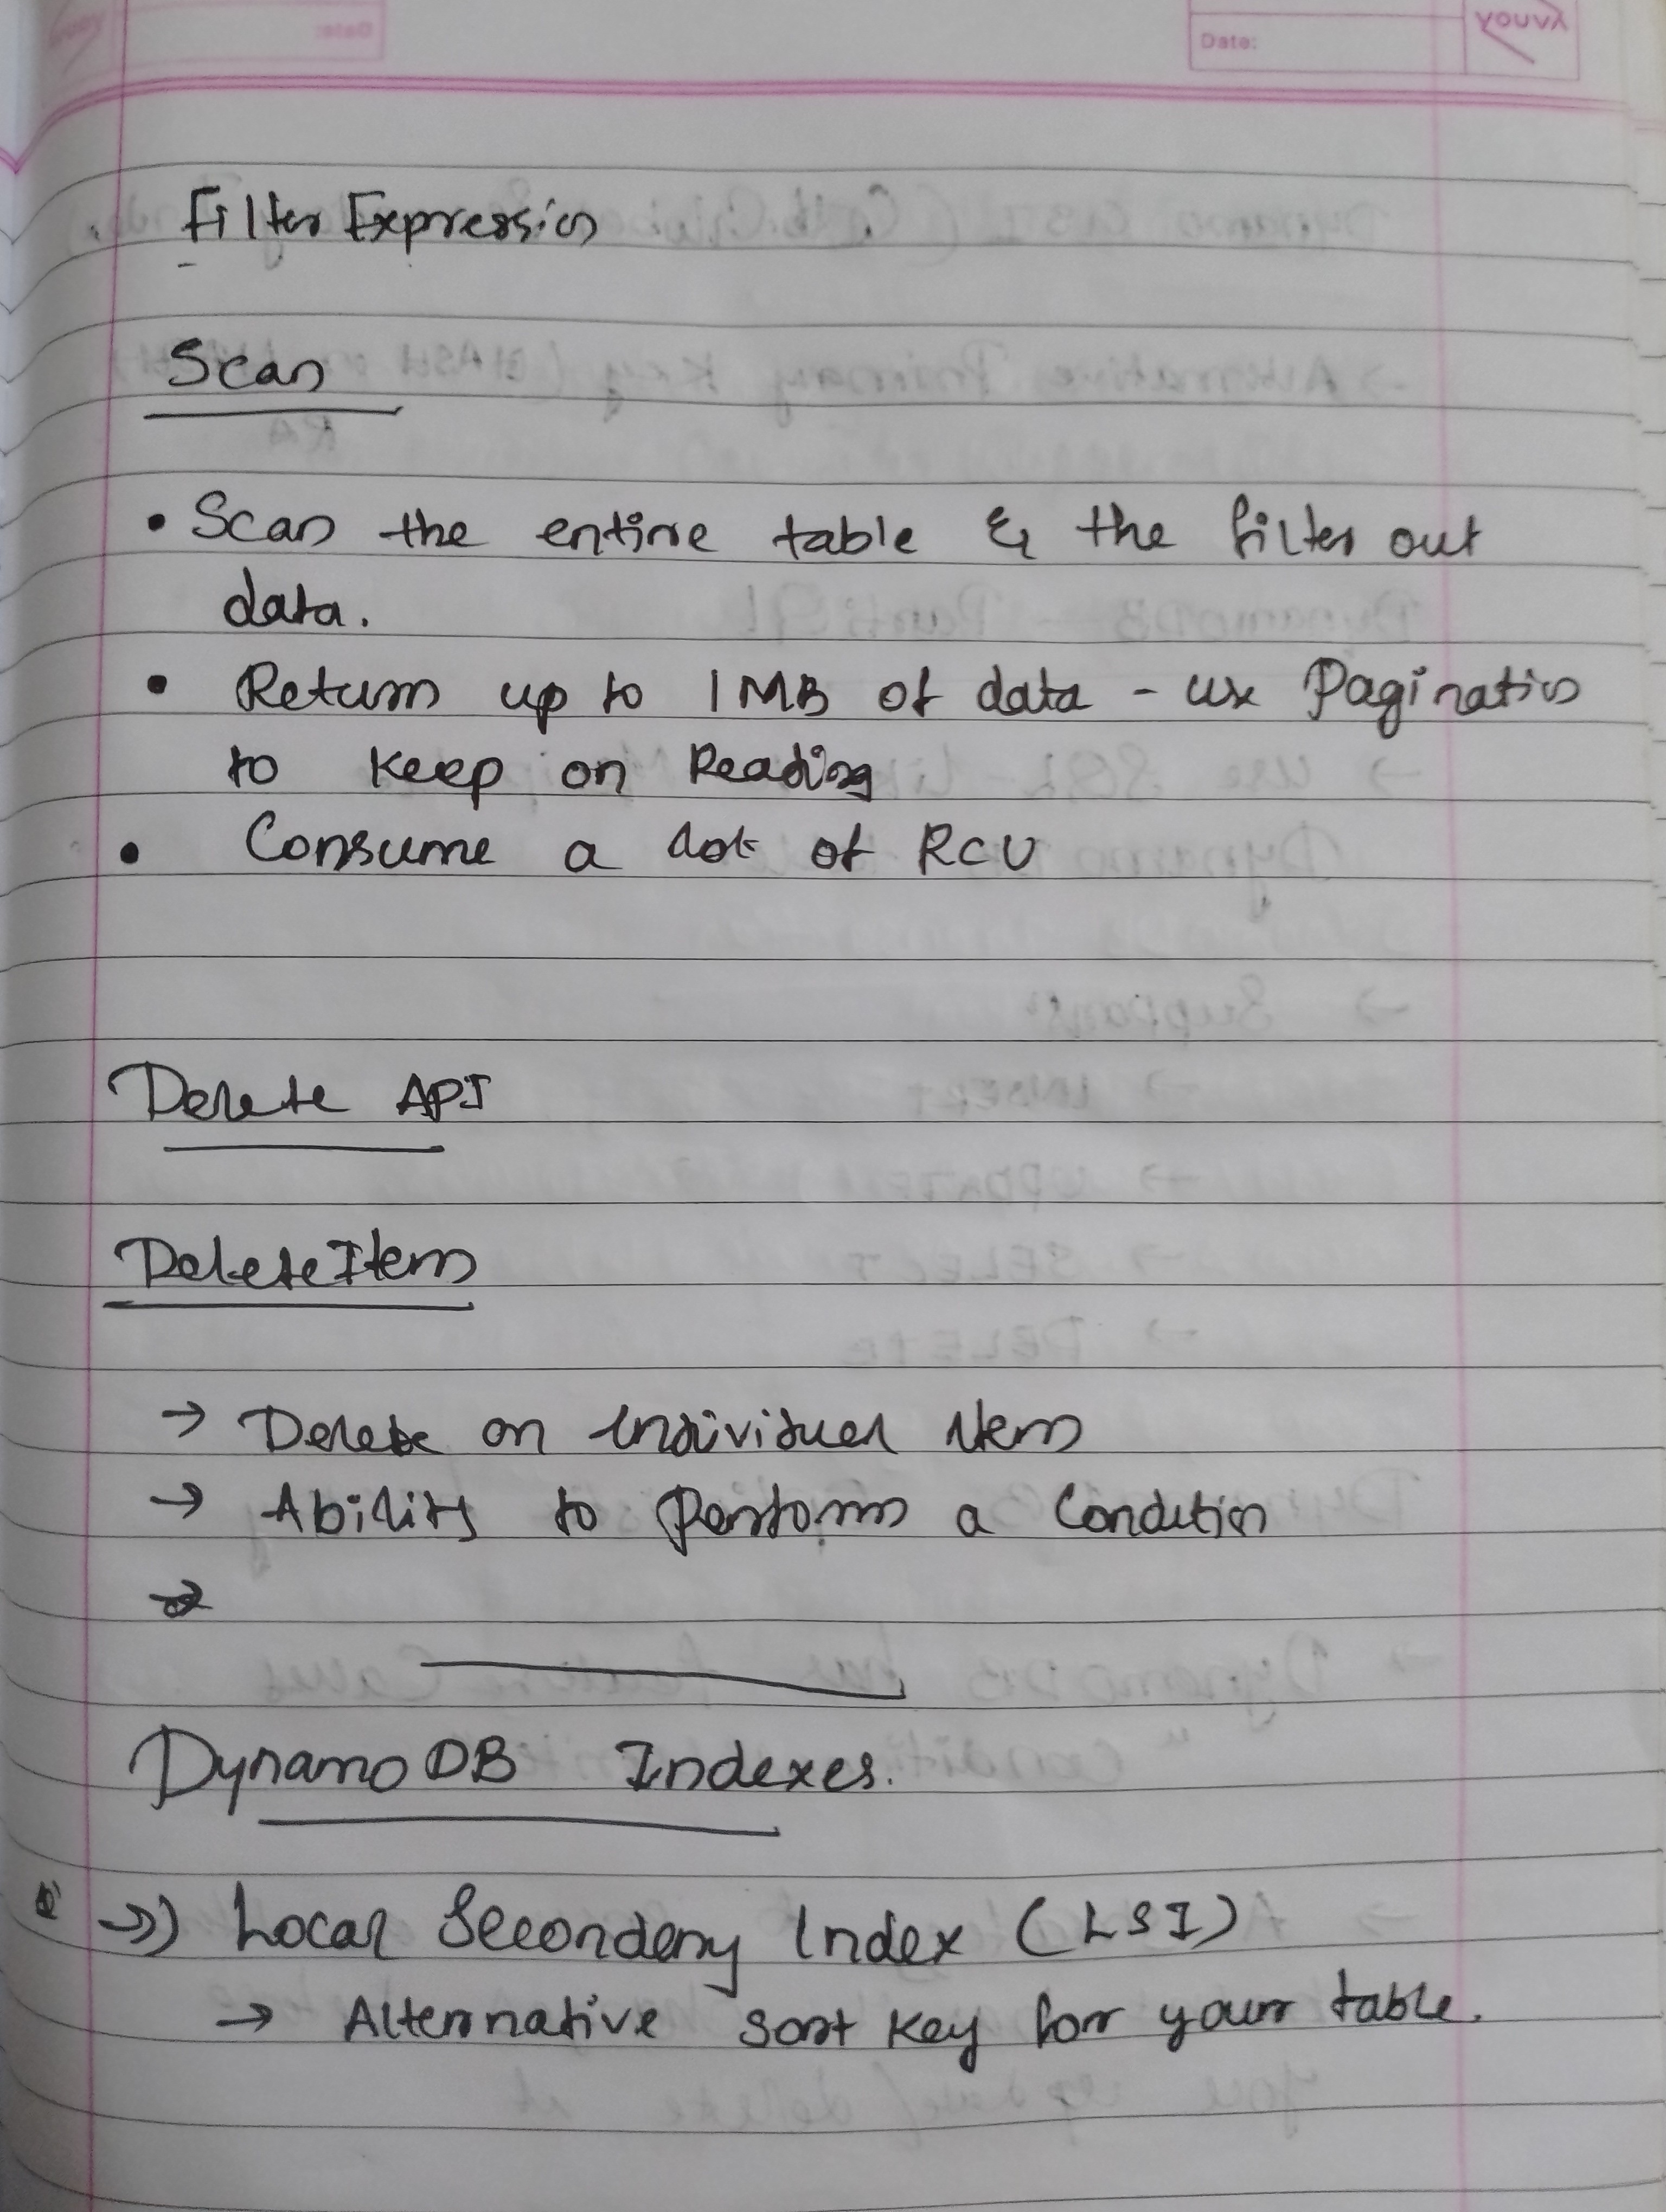 Date:
Filter Expression
Scan
• Scan the entire table & the filter out
data.
• Return up to 1MB of data - use Pagination
to keep on Reading
• Consume a lot of RCU
Delete API
DeleteItem
→ Delete an individual item
→ Ability to Perform a Condition
→
DynamoDB Indexes.
→ Local Secondary Index (LSI)
→ Alternative sort key for your table.